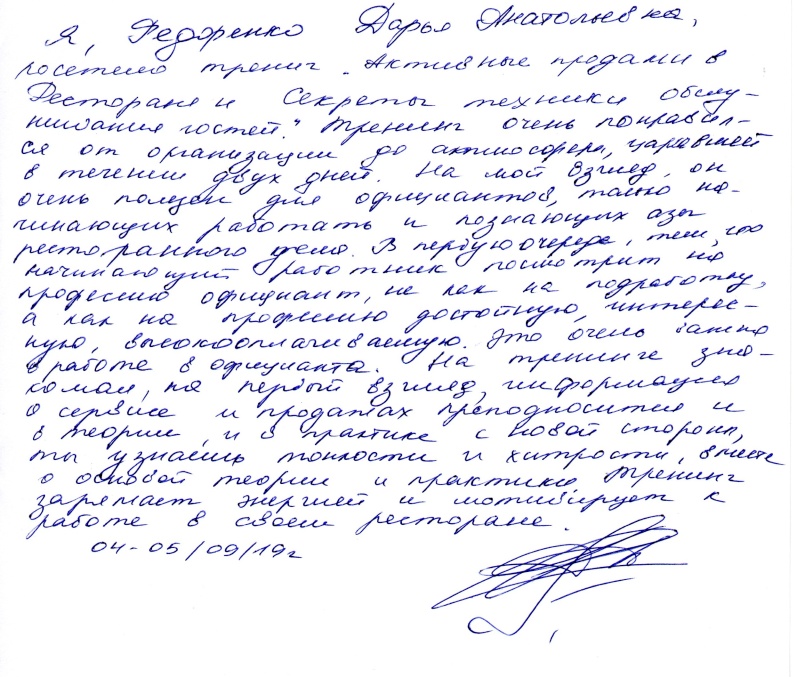 Я, Федоренко Дарья Анатольевна,
посетила тренинг „Активные продажи в
Ресторане и Секреты техники обслу-
живания гостей." Тренинг очень понравил-
ся от организации до атмосферы, царившей
в течении двух дней. На мой взгляд, он
очень полезен для официантов, только на-
чинающих работать и познающих азы
ресторанного дела. В первую очередь, тем, что
начинающий работник посмотрит на
профессию официант, не как на подработку,
а как на профессию достойную, интерес-
ную, высокооплачиваемую. Это очень важно
в работе в официанта. На тренинге зна-
комая, на первый взгляд, информация
о сервисе и продажах преподносится и
в теории, и в практике с новой стороны,
ты узнаешь тонкости и хитрости, вместе
с основой теории и практики. Тренинг
заряжает энергией и мотивирует к
работе в своем ресторане.
04-05/09/19г